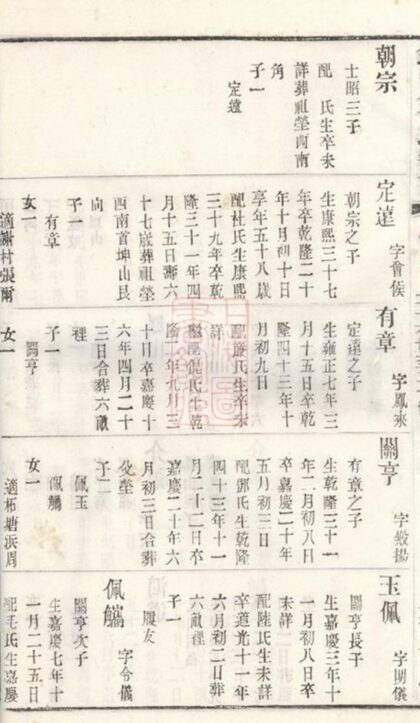 朝宗
士昭三子
配 氏生卒未
詳葬祖塋西南
角
子一
定遠
定遠 字會侯
朝宗之子
生康熙三十七
年卒乾隆二十
年十月初十日
享年五十八歲
配杜氏生康熙
三十九年卒乾
隆三十一年四
月十五日壽六
十七歲葬祖塋
西南首坤山艮
向
子一
有章
女一
適謝村張爾
有章 字鳳來
定遠之子
生雍正七年三
月十五日卒乾
隆四十三年十
月初九日
配嚴氏生卒未
詳
氏生乾
隆二年九月三
十日卒嘉慶十
六年四月二十
三日合葬六畝
裡
子一
關亨
女一
關亨 字毅揚
有章之子
生乾隆三十一
年二月初八日
卒嘉慶二十年
五月初三日
配鄧氏生乾隆
四十三年十一
月二十二日卒
嘉慶二十年六
月初三日合葬
父塋
子二
佩玉
佩觿
女一
適布塘浜周
玉佩 字明儀
關亨長子
生嘉慶三年十
一月初八日卒
未詳
配陸氏生未詳
卒道光十一年
六月初二日葬
六畝裡
子一
履友
佩觿 字令儀
關亨次子
生嘉慶七年十
一月二十五日
配毛氏生嘉慶